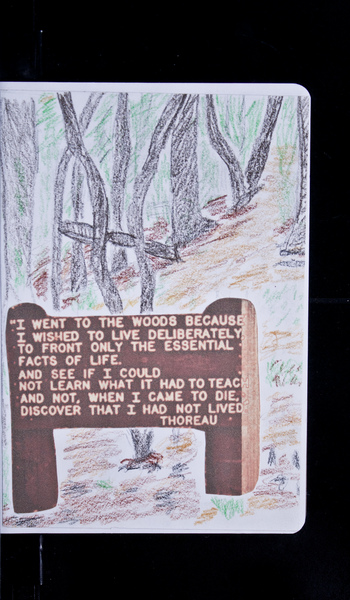 "I WENT TO THE WOODS BECAUSE
I WISHED TO LIVE DELIBERATELY
TO FRONT ONLY THE ESSENTIAL
FACTS OF LIFE.
AND SEE IF I COULD
NOT LEARN WHAT IT HAD TO TEAC
AND NOT, WHEN I CAME TO DIE,
DISCOVER THAT I HAD NOT LIVED
THOREAU